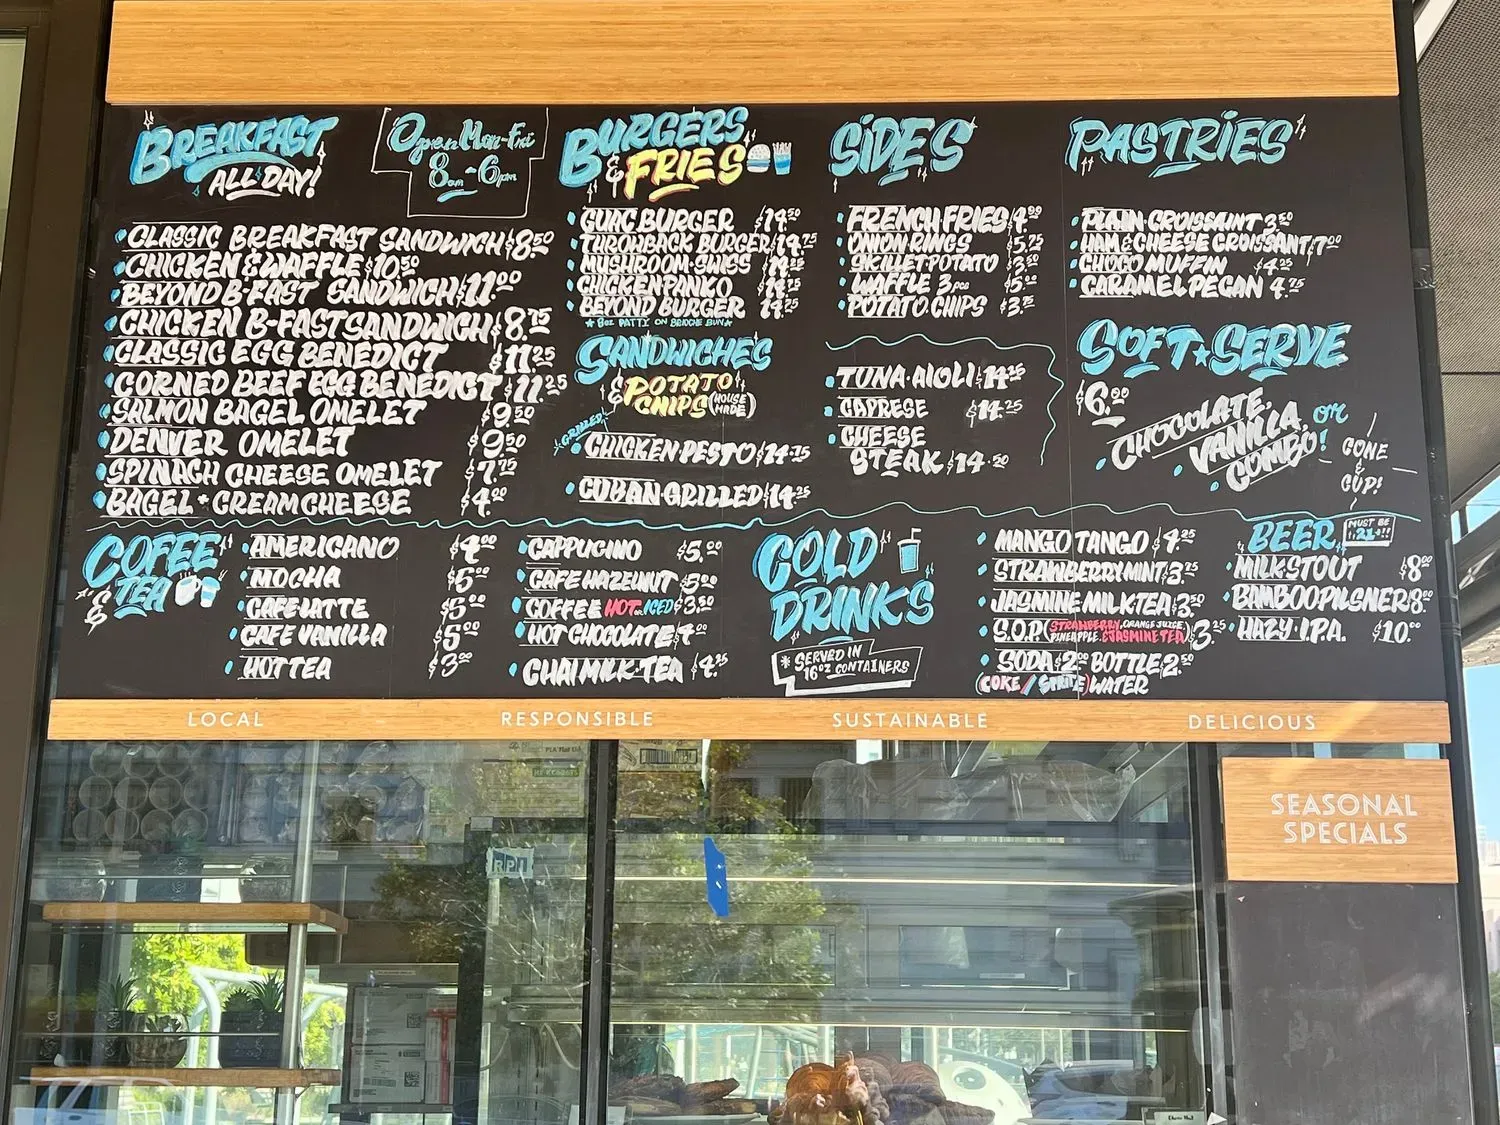 BREAKFAST
ALL DAY!
Open Mon-Fri
8am-6pm
CLASSIC BREAKFAST SANDWICH $8.50
CHICKEN & WAFFLE $10.50
BEYOND B-FAST SANDWICH $11.00
CHICKEN B-FAST SANDWICH $8.75
CLASSIC EGG BENEDICT $11.25
CORNED BEEF EGG BENEDICT $11.25
SALMON BAGEL OMELET $9.50
DENVER OMELET $9.50
SPINACH CHEESE OMELET $7.75
BAGEL + CREAM CHEESE $4.00
BURGERS
& FRIES
GUAC BURGER $14.50
THROWBACK BURGER $14.75
MUSHROOM SWISS 14.25
CHICKEN PANKO $14.25
BEYOND BURGER 14.25
★ 8oz PATTY ON BRIOCHE BUN ★
SANDWICHES
& POTATO
CHIPS (HOUSE MADE)
GRILLED
CHICKEN PESTO $14.75
CUBAN GRILLED $14.25
SIDES
FRENCH FRIES $4.00
ONION RINGS $5.75
SKILLET POTATO $3.50
WAFFLE 3 pcs $5.00
POTATO CHIPS $3.75
TUNA AIOLI $14.25
CAPRESE $14.25
CHEESE
STEAK $14.50
PASTRIES
PLAIN CROISSAINT 3.50
HAM & CHEESE CROISSANT $7.00
CHOCO MUFFIN $4.25
CARAMEL PECAN 4.75
SOFT★SERVE
$6.00
CHOCOLATE,
VANILLA, or
COMBO!
CONE
&
CUP!
COFEE
& TEA
AMERICANO $4.00
MOCHA $5.00
CAFE LATTE $5.00
CAFE VANILLA $5.00
HOT TEA $3.00
CAPPUCINO $5.00
CAFE HAZELNUT $5.00
COFFEE HOT or ICED $3.50
HOT CHOCOLATE $4.00
CHAI MILK TEA $4.25
COLD
DRINKS
* SERVED IN
16oz CONTAINERS
MANGO TANGO $4.25
STRAWBERRY MINT $3.75
JASMINE MILK TEA $3.50
S.O.P. (STRAWBERRY, ORANGE JUICE,
PINEAPPLE & JASMINE TEA) $3.25
SODA $2.00 BOTTLE $2.50
(COKE / SPRITE) WATER
BEER
MUST BE
21+!!
MILK STOUT $8.00
BAMBOO PILSNER $8.00
HAZY I.P.A. $10.00
LOCAL RESPONSIBLE SUSTAINABLE DELICIOUS
SEASONAL
SPECIALS